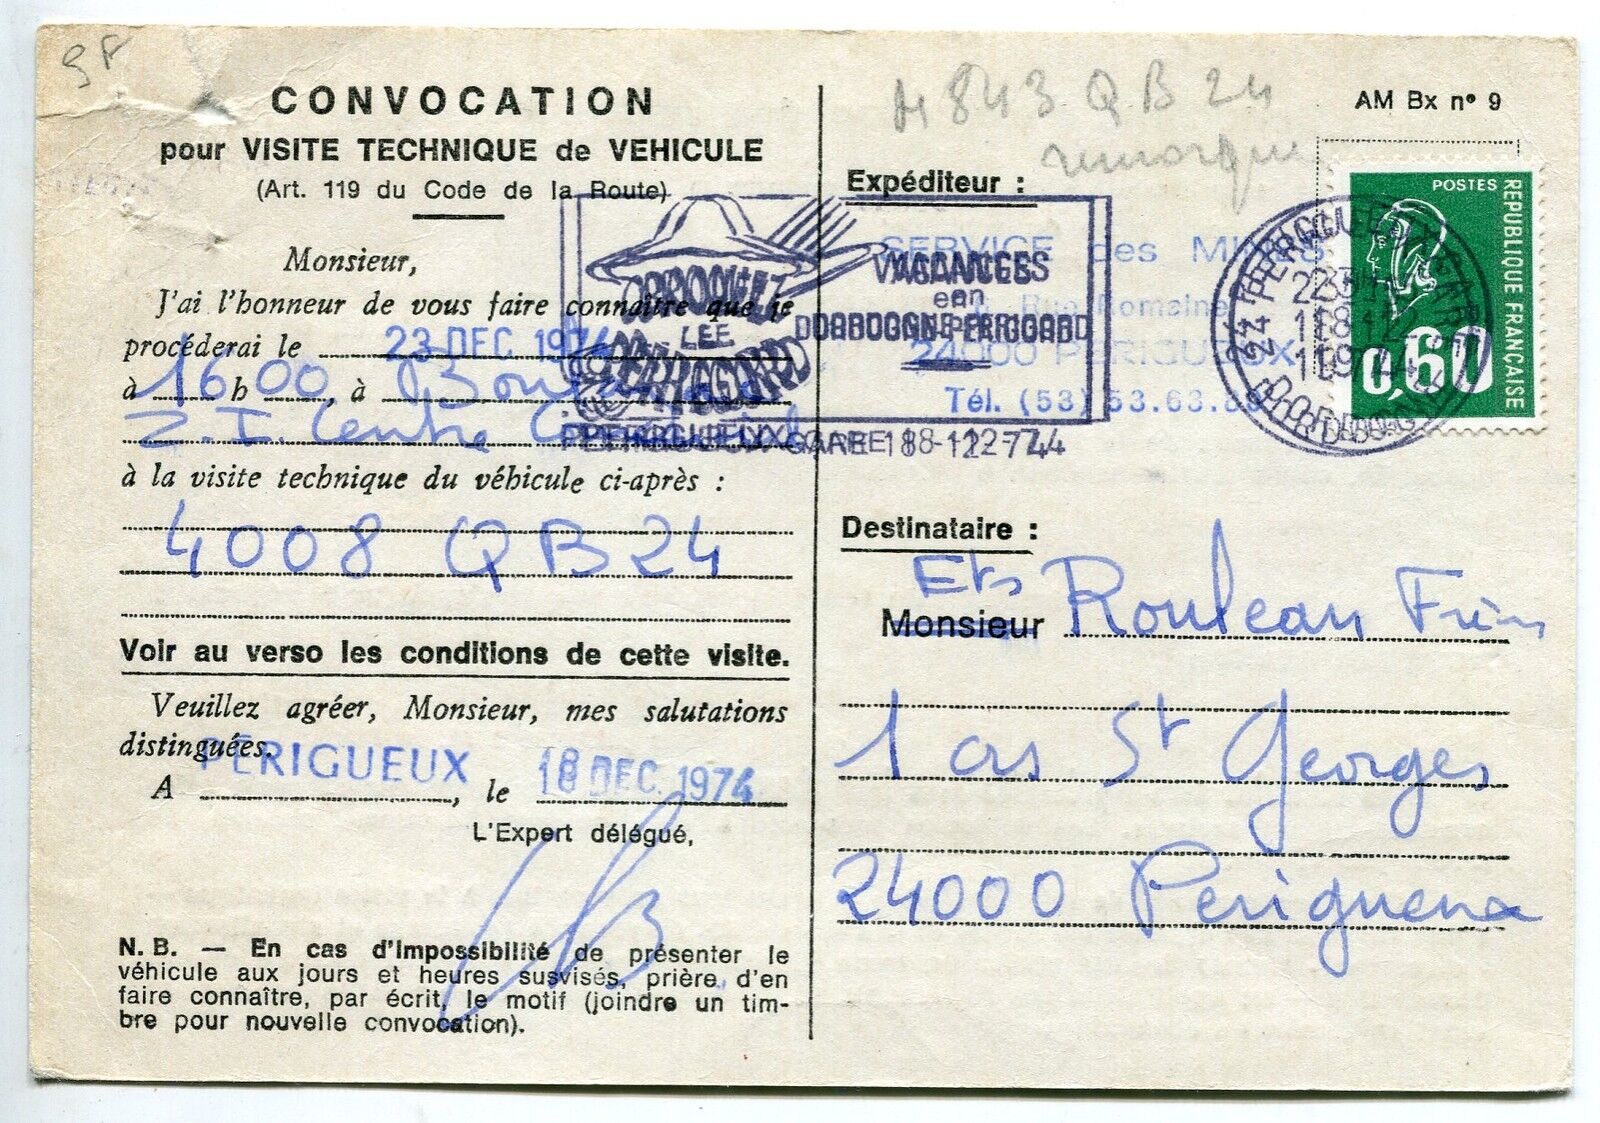 9F
CONVOCATION
pour VISITE TECHNIQUE de VEHICULE
(Art. 119 du Code de la Route)
Monsieur,
J'ai l'honneur de vous faire connaître que je
procéderai le 23 DEC. 1974
à 16 h 00, à
Z.I. Centre
à la visite technique du véhicule ci-après :
4008 QB 24
Voir au verso les conditions de cette visite.
Veuillez agréer, Monsieur, mes salutations
distinguées.
A PÉRIGUEUX, le 18 DEC. 1974
L'Expert délégué,
N. B. — En cas d'impossibilité de présenter le
véhicule aux jours et heures susvisés, prière d'en
faire connaître, par écrit, le motif (joindre un tim-
bre pour nouvelle convocation).
4843 QB 24
remorque
AM Bx n° 9
Expéditeur :
SERVICE des MINES
Rue Romaine
24000 PERIGUEUX
Tél. (53) 53.63.
VACANCES
en
DORDOGNE-PERIGORD
PERIGUEUX GARE 18-12-74
24 PERIGUEUX GARE
18-12
1974
DORDOGNE
POSTES
REPUBLIQUE FRANÇAISE
0,60
Destinataire :
Ets
Monsieur Rouleau Frères
1 crs St Georges
24000 Perigueux